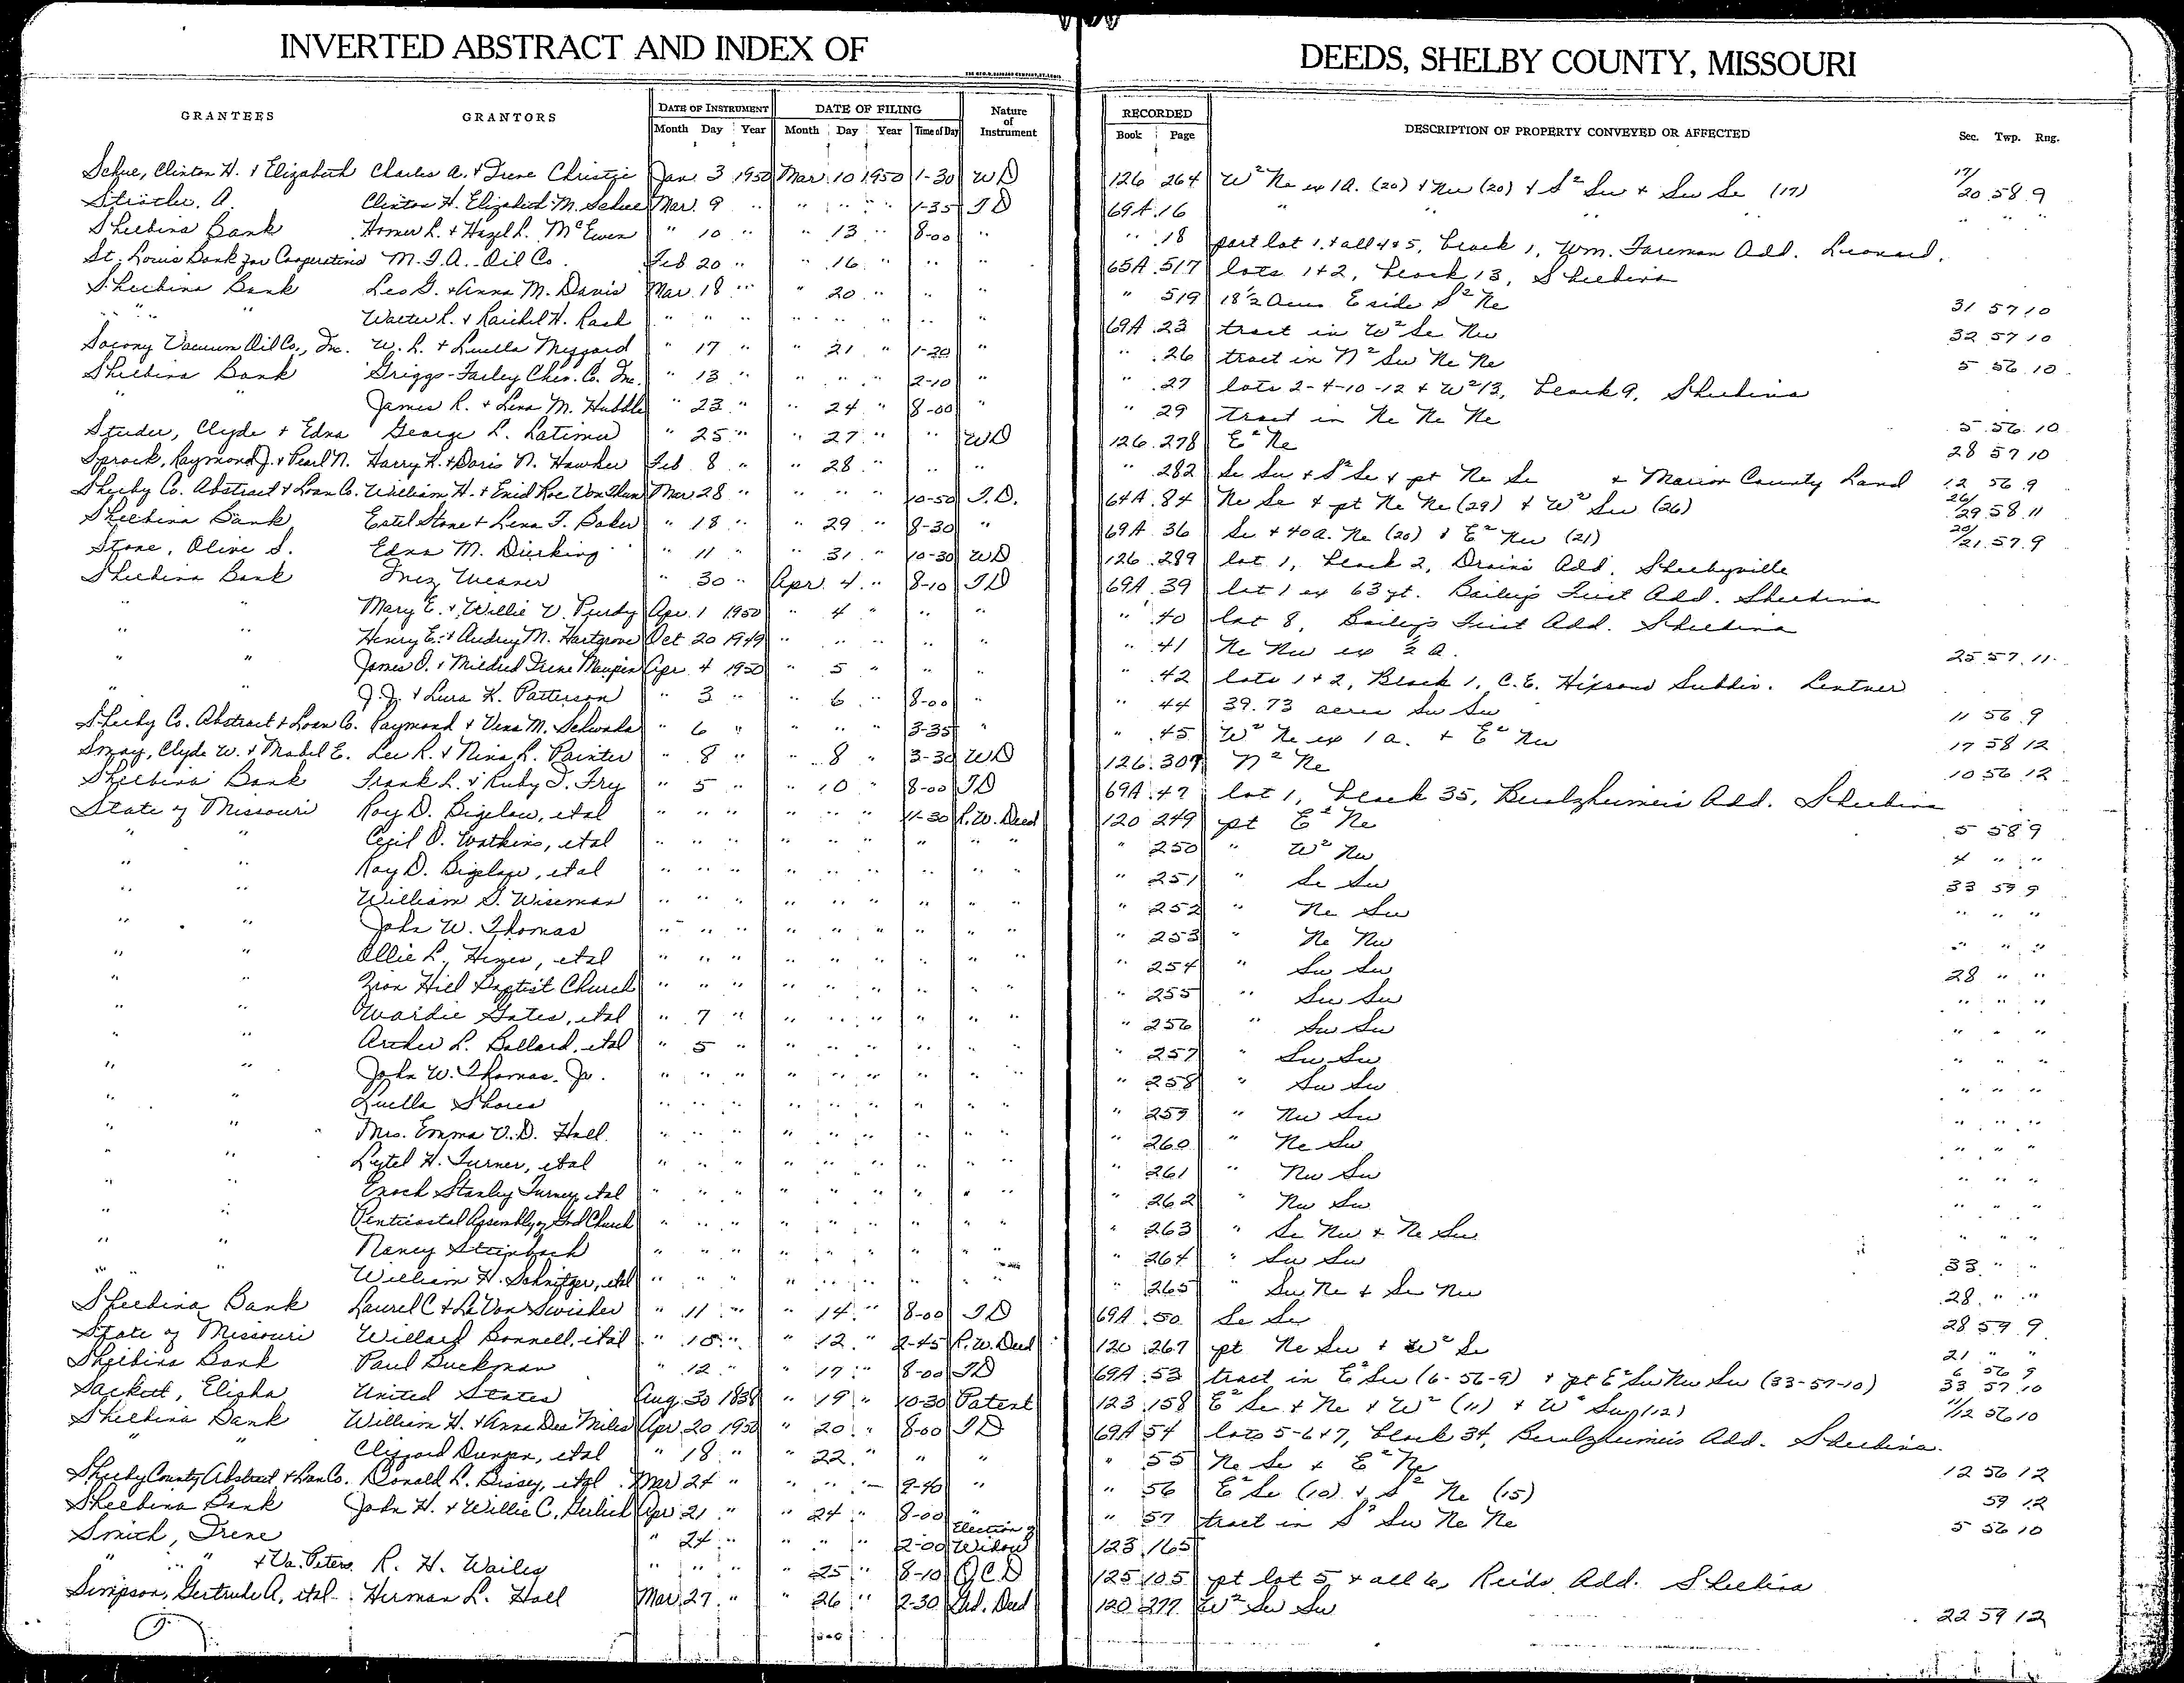 INVERTED ABSTRACT AND INDEX OF DEEDS, SHELBY COUNTY, MISSOURI
GRANTEES GRANTORS DATE OF INSTRUMENT DATE OF FILING Nature of Instrument RECORDED DESCRIPTION OF PROPERTY CONVEYED OR AFFECTED Sec. Twp. Rng.
Month Day Year Month Day Year Time of Day Book Page
Schue, Clinton H. & Elizabeth Charles A. & Irene Christgie Jan 3 1950 Mar 10 1950 1-30 WD 126 264 W² Ne ex 1A. (20) & Nw (20) & S² Sw & Sw Se (17) 17/20 58 9
Strother, A. Clinton H. Elizabeth M. Schue Mar. 9 " " " " 1-35 TD 69A 16 " " " " " " "
Shelbina Bank Homer L. & Hazel L. McEwen " 10 " " 13 " 8-00 " " 18 part lot 1, & all 4 & 5, block 1, Wm. Foreman Add. Leonard.
St. Louis Bank for Cooperatives M.F.A. Oil Co. Feb 20 " " 16 " " " 65A 517 lots 1+2, block 13, Shelbina
Shelbina Bank Leo G. & Anna M. Davis Mar. 18 " " 20 " " " " 519 18½ acres E side S² Ne 31 57 10
" " Walter L. & Raichel H. Rash " " " " " " " " 69A 23 tract in W² Se Nw 32 57 10
Socony Vacuum Oil Co., Inc. W. L. & Luella Meggard " 17 " " 21 " 1-20 " " 26 tract in N² Sw Ne Ne 5 56 10
Shelbina Bank Griggs-Farley Chev. Co. Inc. " 13 " " " " 2-10 " " 27 lots 2-4-10-12 & W²13, block 9, Shelbina
" " James R. & Lena M. Hubble " 23 " " 24 " 8-00 " " 29 tract in Ne Ne Ne 5 56 10
Studer, Clyde & Edna George L. Latimer " 25 " " 27 " " WD 126 278 E² Ne 28 57 10
Sprock, Raymond J. & Pearl N. Harry K. & Doris N. Hawker Feb 8 " " 28 " " " " 282 Se Sw & S² Se & pt Ne Se & Marion County Land 12 56 9
Shelby Co. Abstract & Loan Co. William H. & Enid Roe VonThun Mar 28 " " " " 10-50 T.D. 64A 84 Ne Se & pt Ne Ne (29) & W² Sw (26) 26/29 58 11
Shelbina Bank Estel Stone & Lena F. Baker " 18 " " 29 " 8-30 " 69A 36 Se & 40a. Ne (20) & E² Nw (21) 20/21 57 9
Stone, Olive S. Edna M. Dierking " 11 " " 31 " 10-30 WD 126 289 lot 1, block 2, Drain's Add. Shelbyville
Shelbina Bank Inez Weaver " 30 " Apr. 4 " 8-10 TD 69A 39 lot 1 ex 63 ft. Bailey's First Add. Shelbina
" " Mary E. & Willie V. Purdy Apr. 1 1950 " 4 " " " " 40 lot 8, Bailey's First Add. Shelbina
" " Henry E. & Audrey M. Hartgrove Oct 20 1949 " " " " " " 41 Ne Nw ex ½ a. 25 57 11
" " James O. & Mildred Irene Maupin Apr. 4 1950 " 5 " " " " 42 lots 1+2, Block 1, C.E. Hixsons Subdiv. Lentner
" " J.J. & Lura K. Patterson " 3 " " 6 " 8-00 " " 44 39.73 acres Sw Sw 11 56 9
Shelby Co. Abstract & Loan Co. Raymond & Vena M. Schwada " 6 " " " " 3-35 " " 45 W² Ne ex 1 a. & E² Nw 17 58 12
Smay, Clyde W. & Mabel E. Lee R. & Nina L. Painter " 8 " " 8 " 3-30 WD 126 307 N² Ne 10 56 12
Shelbina Bank Frank L. & Ruby F. Fry " 5 " " 10 " 8-00 TD 69A 47 lot 1, block 35, Benlzheimer's Add. Shelbina
State of Missouri Roy D. Bigelow, etal " " " " " " 11-30 R.W. Deed 120 249 pt E² Ne 5 58 9
" " Cecil O. Watkins, etal " " " " " " " " " " 250 " W² Nw 4 " "
" " Roy D. Bigelow, etal " " " " " " " " " " 251 " Se Sw 33 59 9
" " William S. Wiseman " " " " " " " " " " 252 " Ne Sw " " "
" " John W. Thomas " " " " " " " " " " 253 " Ne Nw " " "
" " Ollie L. Hines, etal " " " " " " " " " " 254 " Sw Sw 28 " "
" " Zion Hill Baptist Church " " " " " " " " " " 255 " Sw Sw " " "
" " Wardie Gates, etal " 7 " " " " " " " " 256 " Sw Sw " " "
" " Archer L. Ballard, etal " 5 " " " " " " " " 257 " Sw Sw " " "
" " John W. Thomas, Jr. " " " " " " " " " " 258 " Sw Sw " " "
" " Luella Shores " " " " " " " " " " 259 " Nw Sw " " "
" " Mrs. Emma V.D. Hall " " " " " " " " " " 260 " Ne Sw " " "
" " Lytel H. Turner, etal " " " " " " " " " " 261 " Nw Sw " " "
" " Enoch Stanley Turney, etal " " " " " " " " " " 262 " Nw Sw " " "
" " Penticostal Assembly of God Church " " " " " " " " " " 263 " Se Nw & Ne Sw " " "
" " Nancy Steinbach " " " " " " " " " " 264 " Sw Sw 33 " "
" " William H. Schnitzer, etal " " " " " " " " " " 265 " Sw Ne & Se Nw 28 " "
Shelbina Bank Laurel C & LaVon Swisher " 11 " " 14 " 8-00 TD 69A 50 Se Se 28 59 9
State of Missouri Willard Bonnell, etal " 10 " " 12 " 2-45 R.W. Deed 120 267 pt Ne Sw & W² Se 21 " "
Shelbina Bank Paul Buckman " 12 " " 17 " 8-00 TD 69A 53 tract in E² Sw (6-56-9) & pt E² Sw Nw Sw (33-57-10) 6 56 9 33 57 10
Sackett, Elisha United States Aug. 30 1838 " 19 " 10-30 Patent 123 158 E² Se & Ne & W² (11) & W² Sw (12) 11/12 56 10
Shelbina Bank William H. & Anna Dee Miles Apr 20 1950 " 20 " 8-00 TD 69A 54 lots 5-6&7, block 34, Benlzheimer's Add. Shelbina
" " Clifford Duncan, etal " 18 " " 22 " " " " 55 Ne Se & E² Ne 12 56 12
Shelby County Abstract & Loan Co. Donald L. Bissey, etal Mar 24 " " " " 9-40 " " 56 E² Se (10) & S² Ne (15) 59 12
Shelbina Bank John H. & Willie C. Gerlich Apr 21 " " 24 " 8-00 " " 57 tract in S² Sw Ne Ne 5 56 10
Smith, Irene " 24 " " " " 2-00 Election of Widow 123 165
" " & Va. Peters R. H. Wailes " " " " 25 " 8-10 Q.C.D 125 105 pt lot 5 & all 6, Reids Add. Shelbina
Simpson, Gertrude A, etal Herman L. Hall Mar. 27 " " 26 " 2-30 Gd. Deed 120 277 W² Sw Sw 22 59 12